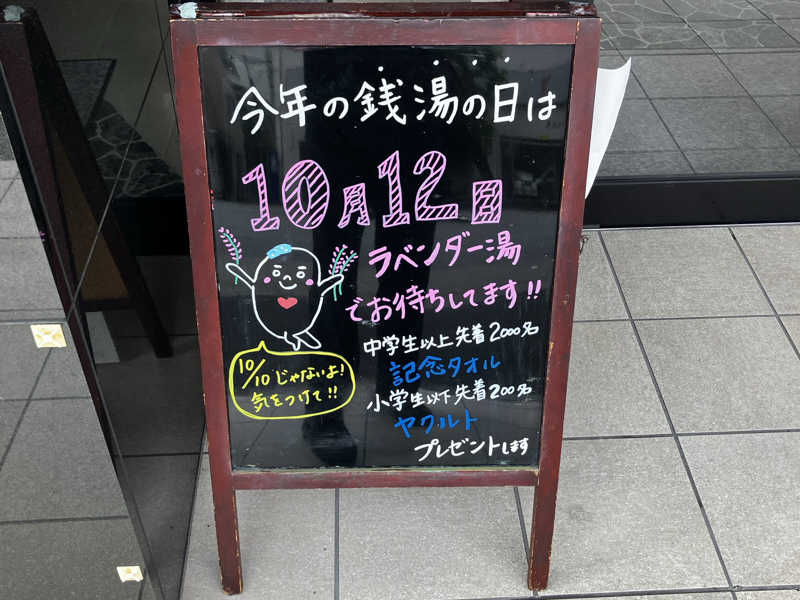 今年の銭湯の日は
10月12日
ラベンダー湯
でお待ちしてます!!
中学生以上先着2000名
記念タオル
小学生以下先着200名
ヤクルト
プレゼントします
10/10じゃないよ!
気をつけて!!